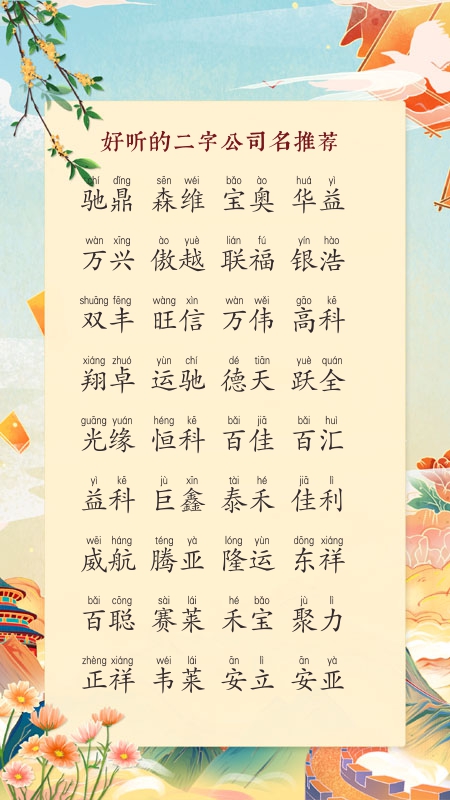 好听的二字公司名推荐
chí dǐng sēn wéi bǎo ào huá yì
驰鼎 森维 宝奥 华益
wàn xīng ào yuè lián fú yín hào
万兴 傲越 联福 银浩
shuāng fēng wàng xìn wàn wěi gāo kē
双丰 旺信 万伟 高科
xiáng zhuó yùn chí dé tiān yuè quán
翔卓 运驰 德天 跃全
guāng yuán héng kē bǎi jiā bǎi huì
光缘 恒科 百佳 百汇
yì kē jù xīn tài hé jiā lì
益科 巨鑫 泰禾 佳利
wēi háng téng yà lóng yùn dōng xiáng
威航 腾亚 隆运 东祥
bǎi cōng sài lái hé bǎo jù lì
百聪 赛莱 禾宝 聚力
zhèng xiáng wéi lái ān lì ān yà
正祥 韦莱 安立 安亚